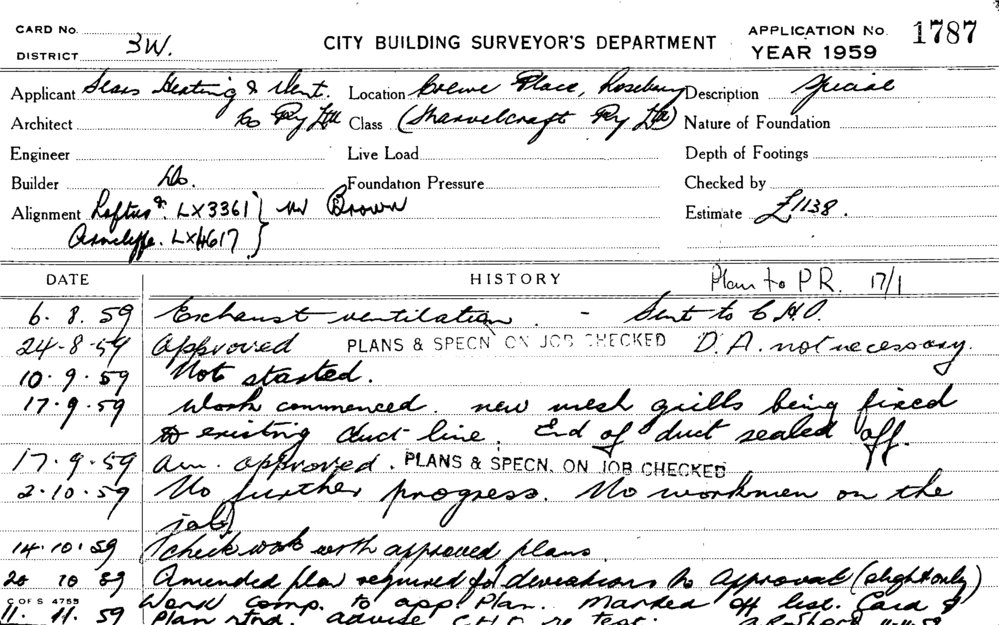 CARD No.
DISTRICT 3W.
CITY BUILDING SURVEYOR'S DEPARTMENT
APPLICATION No. 1787
YEAR 1959
Applicant Sears Heating & Vent. Location Crewe Place, Rosebery Description Special
Architect Co Pty Ltd Class (Marvelcraft Pty Ltd) Nature of Foundation
Engineer Live Load Depth of Footings
Builder Do. Foundation Pressure Checked by
Alignment Loftus LX3361 } Mr Brown Estimate £1138.
Arncliffe. LX4617
DATE HISTORY Plan to PR. 17/1
6. 8. 59 Exhaust ventilation. - Sent to C.H.O.
24-8-59 Approved PLANS & SPECN. ON JOB CHECKED D.A. not necessary.
10. 9. 59 Not started.
17. 9. 59 Work commenced. new mesh grills being fixed
to existing duct line. End of duct sealed off.
17. 9. 59 Am. approved. PLANS & SPECN. ON JOB CHECKED
2. 10. 59 No further progress. No workmen on the
job)
14. 10. 59 Check work with approved plans.
20 10 59 Amended plan required for deviations to Approval (slight only)
C OF S 4755
11. 11. 59 Work comp. to app. Plan. Marked off list. Card &
Plan rtnd. advise C.H.O. re test.